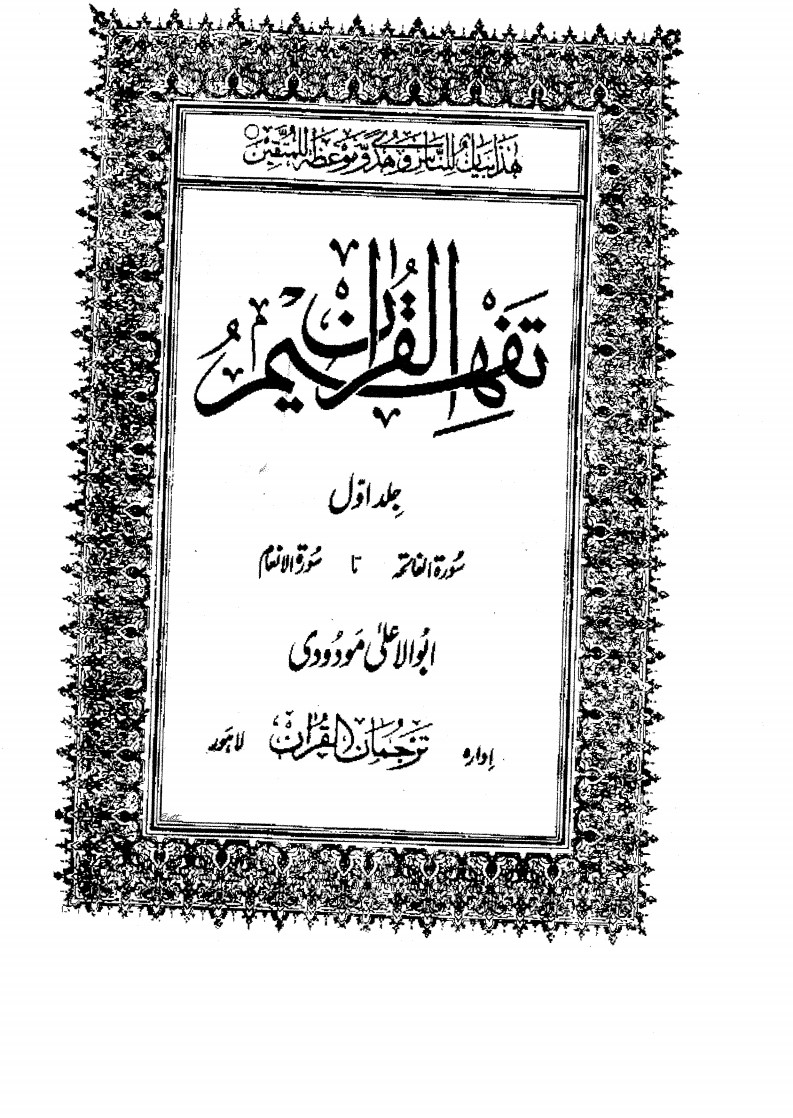 هٰذَا بَيَانٌ لِّلنَّاسِ وَهُدًى وَّمَوْعِظَةٌ لِّلْمُتَّقِيْنَ
تفہیم القرآن
جلد اوّل
سُورۃ الفاتحہ تا سُورۃ الانعام
ابُوالاعلیٰ مَودُودی
اِدارہ تَرجُمانُ القُرآن لاہَور